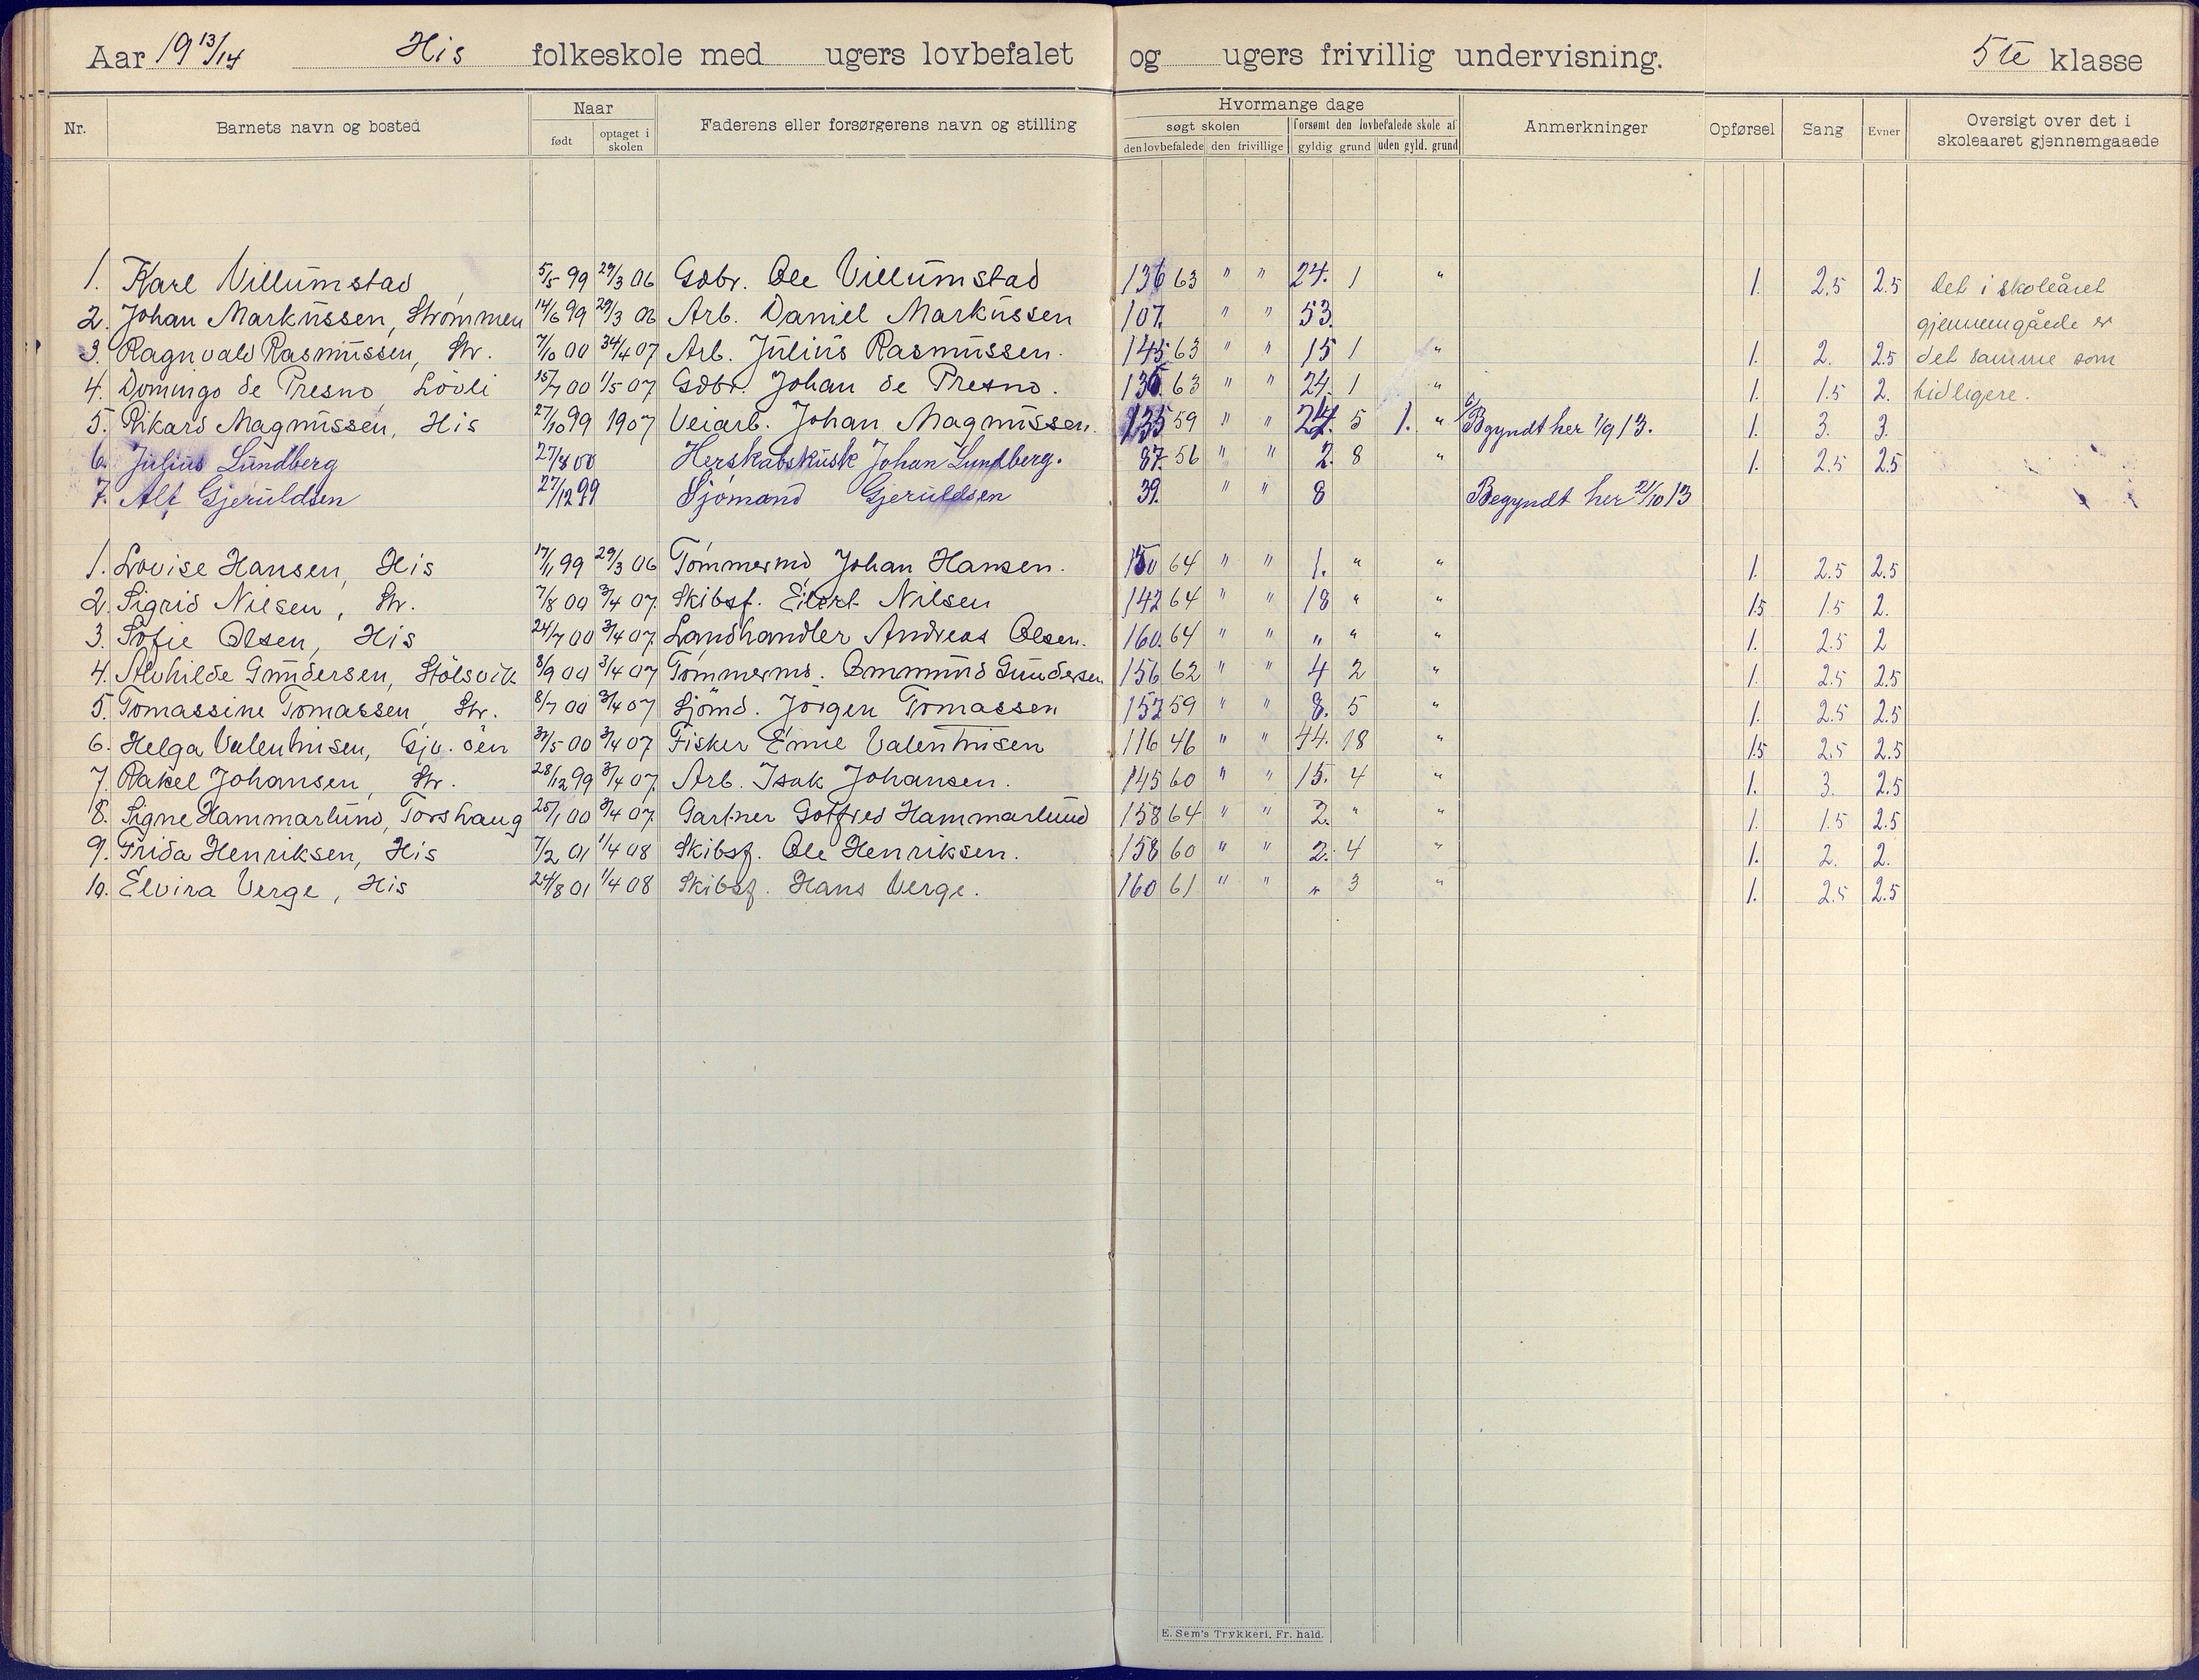 Aar 19 13/14 His folkeskole med ugers lovbefalet og ugers frivillig undervisning. 5te klasse
Nr. Barnets navn og bosted Naar født optaget i skolen Faderens eller forsørgerens navn og stilling Hvormange dage søgt skolen den lovbefalede den frivillige forsømt den lovbefalede skole af gyldig grund uden gyld. grund Anmerkninger Opførsel Sang Evner Oversigt over det i skoleaaret gjennemgaaede
1. Karl Villumstad 5/5 99 29/3 06 Gdbr. Ole Villumstad 136 63 " " 24. 1 " 1. 2.5 2.5 Det i skoleåret
2. Johan Markussen, Strømmen 14/6 99 29/3 06 Arb. Daniel Markussen 107. " " 53. gjennemgåede er
3. Ragnvald Rasmussen, Str. 7/10 00 07 Arb. Julius Rasmussen. 145 63 " " 15 1 " 1. 2. 2.5 det samme som
4. Domingo de Presno, Lövli 15/7 00 1/5 07 Gdbr. Johan de Presno. 136. 63 " " 24. 1 " 1. 1.5 2. tidligere.
5. Rikard Magnussen, His 27/10 99 1907 Veiarb. Johan Magnussen. 135 59 " " 24. 5 1. " Begyndt her 1/9 13. 1. 3. 3.
6. Julius Lundberg 27/8 00 Herskabskusk Johan Lundberg. 87. 56 " " 2. 8 " 1. 2.5 2.5
7. Alf Gjeruldsen 27/12 99 Sjömand Gjeruldsen 39. " " 8 Begyndt her 21/10 13
1. Lovise Hansen, His 17/11 99 29/3 06 Tömmermd Johan Hansen. 150 64 " " 1. " " 1. 2.5 2.5
2. Sigrid Nilsen, Str. 7/8 00 3/4 07. Skibsf. Eilert Nilsen 142 64 " " 18 " " 1.5 1.5 2.
3. Sofie Olsen, His 24/7 00 3/4 07. Landhandler Andreas Olsen. 160. 64 " " " " " 1. 2.5 2
4. Alvhilde Gundersen, Stölsvik 8/9 00 3/4 07 Tömmermd. Ommund Gundersen 156 62 " " 4 2 " 1. 2.5 2.5
5. Tomassine Tomassen, Str. 8/7 00 3/4 07 Sjömd. Jörgen Tomassen 152 59 " " 8. 5 " 1. 2.5 2.5
6. Helga Valentinsen, Gjv. öen 31/5 00 3/4 07. Fisker Enne Valentinsen 116 46 " " 44. 18 " 1.5 2.5 2.5
7. Rakel Johansen, Str. 28/12 99 3/4 07. Arb. Isak Johansen. 145 60 " " 15. 4 " 1. 3. 2.5
8. Signe Hammarlund, Torshaug 25/1 00 3/4 07. Gartner Gotfred Hammarlund 158 64 " " 2. " " 1. 1.5 2.5
9. Frida Henriksen, His 7/2 01 1/4 08 Skibsf. Ole Henriksen. 158 60 " " 2. 4 " 1. 2. 2.
10. Elvira Verge, His 24/8 01 1/4 08 Skibsf. Hans Verge. 160 61 " " " 3 " 1. 2.5 2.5
E. Sem's Trykkeri, Fr. hald.